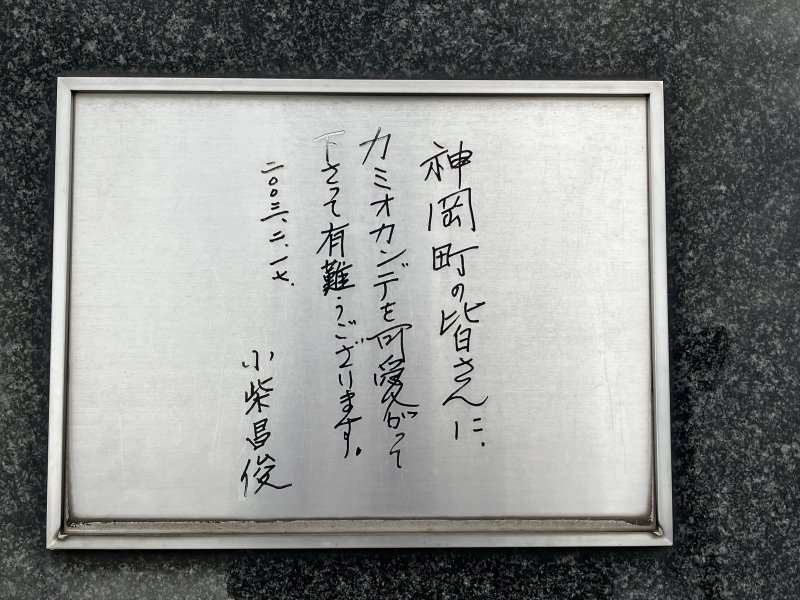 神岡町の皆さんに.
カミオカンデを可愛がって
下さって有難うございます。
二〇〇三、二、一七.
小柴昌俊